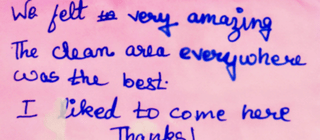 We felt so very amazing
The clean area everywhere
was the best.
I liked to come here
Thanks!